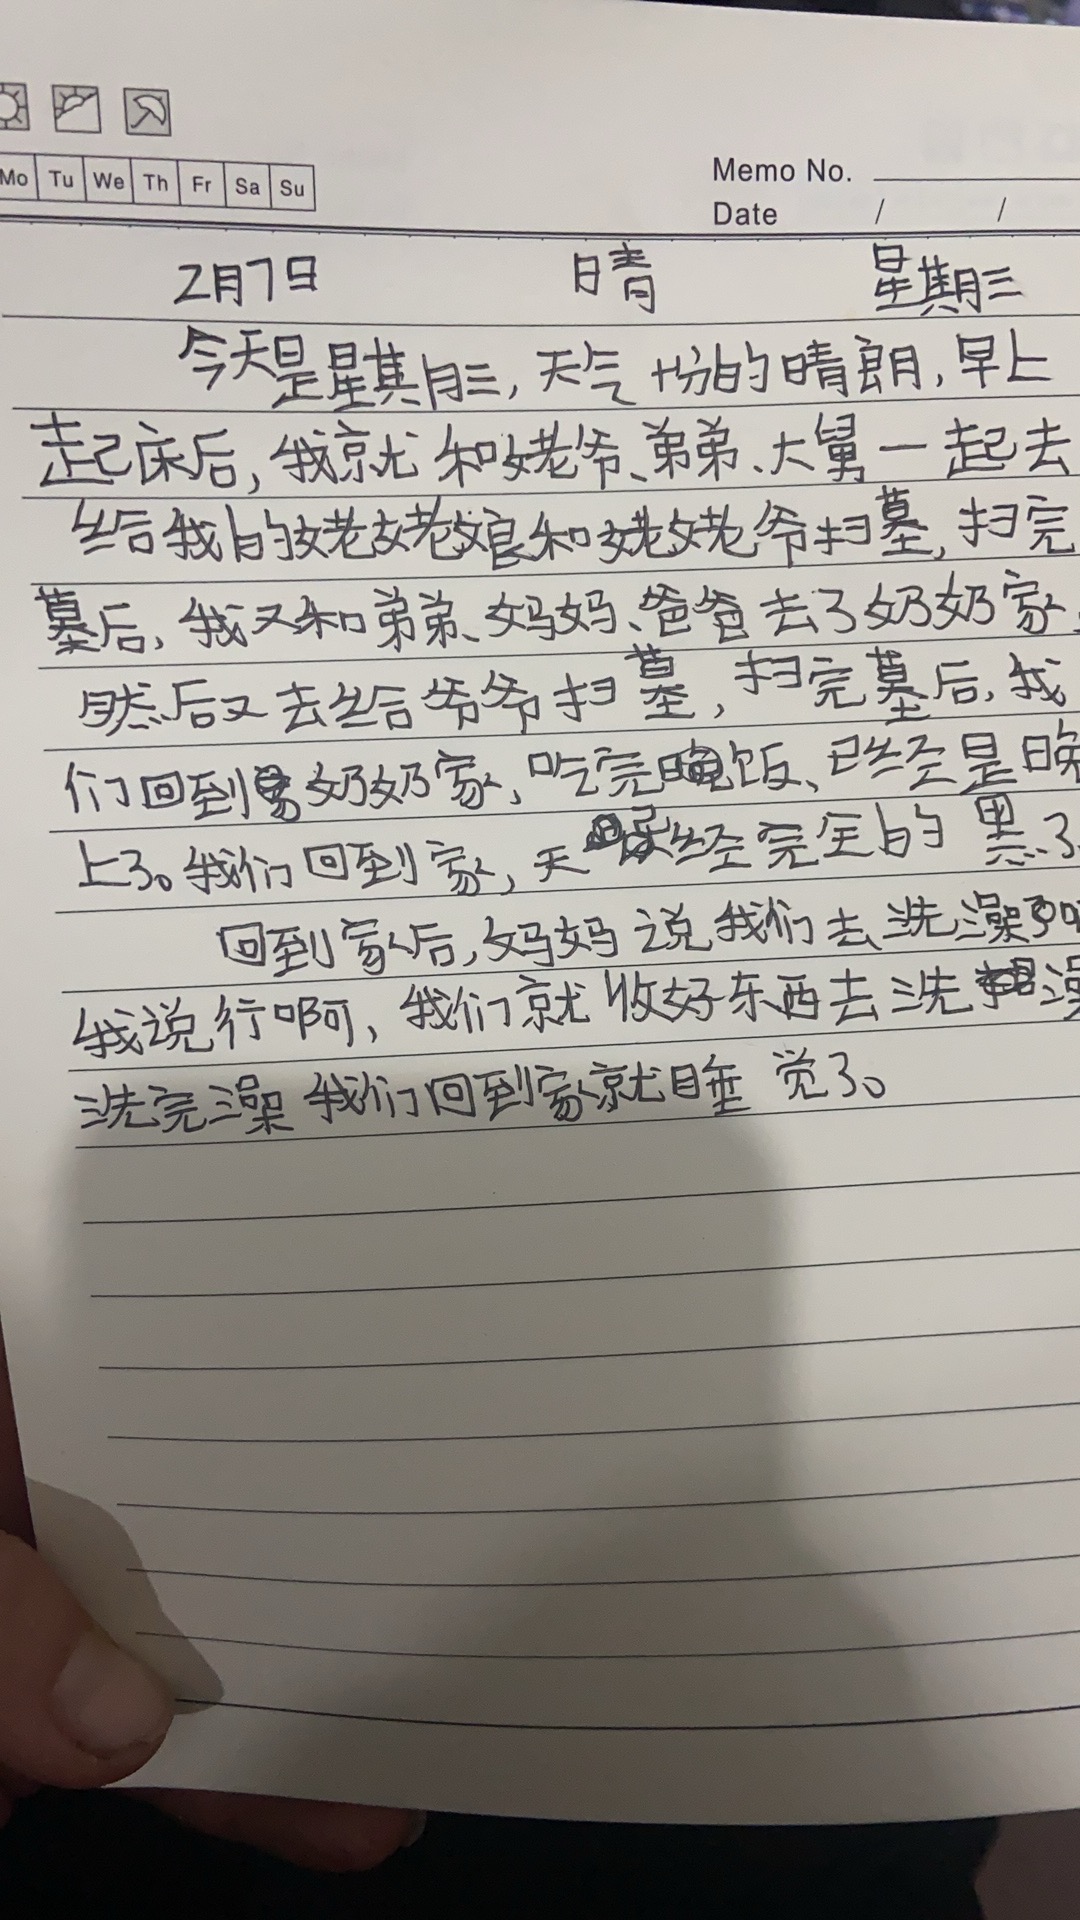 Mo Tu We Th Fr Sa Su
Memo No.
Date / /
2月7日 晴 星期三
今天是星期三,天气十份的晴朗,早上
起床后,我就和姥爷、弟弟、大舅一起去
给我的姥姥娘和姥姥爷扫墓,扫完
墓后,我又和弟弟、妈妈、爸爸去了奶奶家,
然后又去给爷爷扫墓,扫完墓后,我
们回到奶奶家,吃完晚饭、已经是晚
上了。我们回到家,天已经完全的黑了
回到家后,妈妈说我们去洗澡
我说行啊,我们就收好东西去洗澡
洗完澡我们回到家就睡觉了。